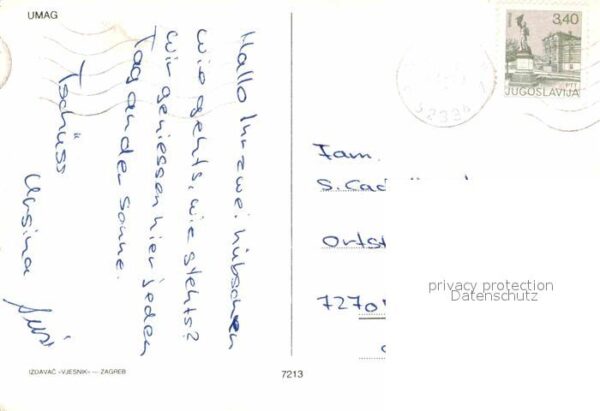 UMAG
Hallo Ihr zwei hübschen
wie gehts, wie stehts?
Wir geniessen hier jeden
Tag an der Sonne.
Tschüss
Ursina
IZDAVAČ »VJESNIK« — ZAGREB
7213
3,40
PTT
JUGOSLAVIJA
52394
Fam.
S. Cad
Ortst
7270
privacy protection
Datenschutz